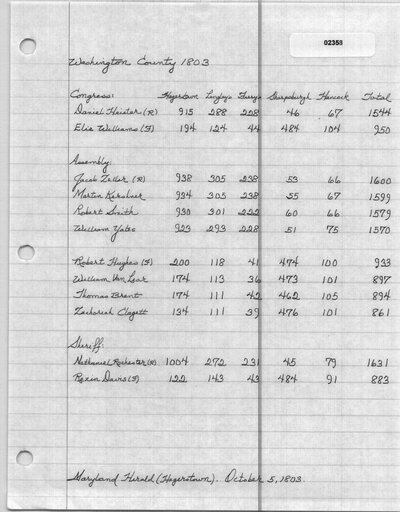 02358
Washington County 1803
Congress: Hagerstown Langley's Funks Sharpsburgh Hancock Total
Daniel Heister (R) 915 288 228 46 67 1544
Elie Williams (F) 194 124 44 484 104 950
Assembly:
Jacob Zeller (R) 938 305 238 53 66 1600
Martin Kershner 934 305 238 55 67 1599
Robert Smith 930 301 222 60 66 1579
William Yates 923 293 228 51 75 1570
Robert Hughes (F) 200 118 41 474 100 933
William Van Lear 174 113 36 473 101 897
Thomas Brent 174 111 42 462 105 894
Zachariah Clagett 134 111 39 476 101 861
Sheriff:
Nathaniel Rochester (R) 1004 272 231 45 79 1631
Rezin Davis (F) 122 143 43 484 91 883
Maryland Herald (Hagerstown). October 5, 1803.